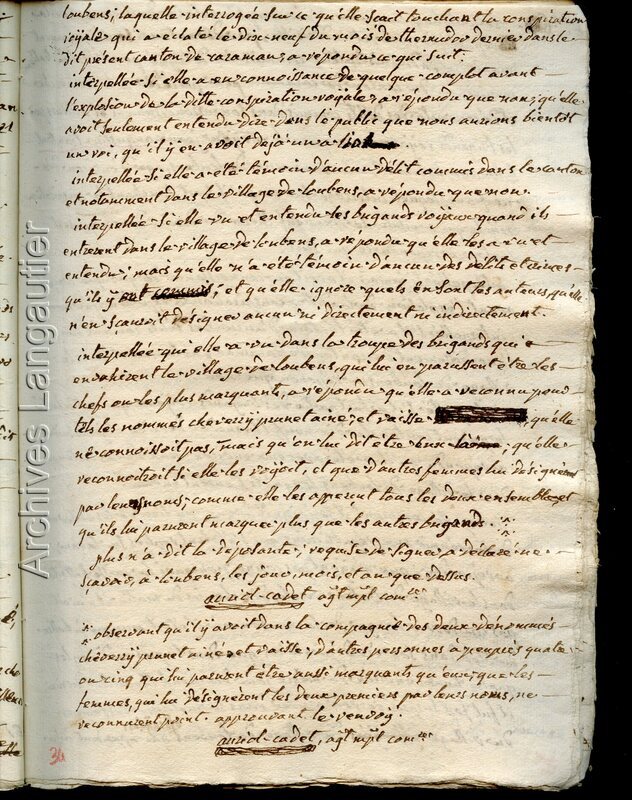 loubens; laquelle interrogée sur ce qu'elle scait touchant la conspiration
royale qui a éclaté le dix neuf du mois de thermidor dernier dans le
dit présent canton de caraman, a répondu ce qui suit.
interpellée si elle a eu connoissance de quelque complot avant
l'explosion de la ditte conspiration royale, a répondu que non; qu'elle
avoit seulement entendu dire dans le public que nous aurions bientôt
un roi, qu'il y en avoit dejà un a
interpellée si elle a été témoin d'aucun délit commis dans le canton
et notamment dans le village de loubens, a répondu que non.
interpellée si elle vu et entendu les brigands royaux quand ils
entrerent dans le village de loubens, a répondu qu'elle les a vu et
entendu; mais qu'elle n'a été témoin d'aucun des délits et crimes
qu'ils y ont commis; et qu'elle ignore quels en sont les auteurs, qu'elle
n'en sçauroit désigner aucun ni directement ni indirectement.
interpellée qui elle a vu dans la troupe des brigands qui
envahirent le village de loubens, qui lui en parussent être les
chefs ou les plus marquants, a répondu qu'elle a reconnu pour
tels les nommés cheverry prunet ainé, et vaisse, qu'elle
ne connoissoit pas, mais qu'on lui dit être eux, qu'elle
reconnoitroit si elle les voyoit, et que d'autres femmes lui désignérent
par leurs noms; comme elle les apperçut tous les deux ensemble, et
qu'ils lui parurent marquer plus que les autres brigands.
plus n'a dit la déposante; requise de signer a déclaré ne
sçavoir, à loubens, les jour, mois, et an que dessus.
auriol-cadet, agt mpl comre
observant qu'il y avoit dans la compagnie des deux dénommés
cheverry prunet ainé, et vaisse, d'autres personnes à peu près quatre
ou cinq qui lui parurent être aussi marquants qu'eux, que les
femmes, qui lui désignèrent les deux premiers par leurs noms, ne
reconnurent point. approuvant le renvoy.
auriol-cadet, agt mpl comre
34
Archives Langautier